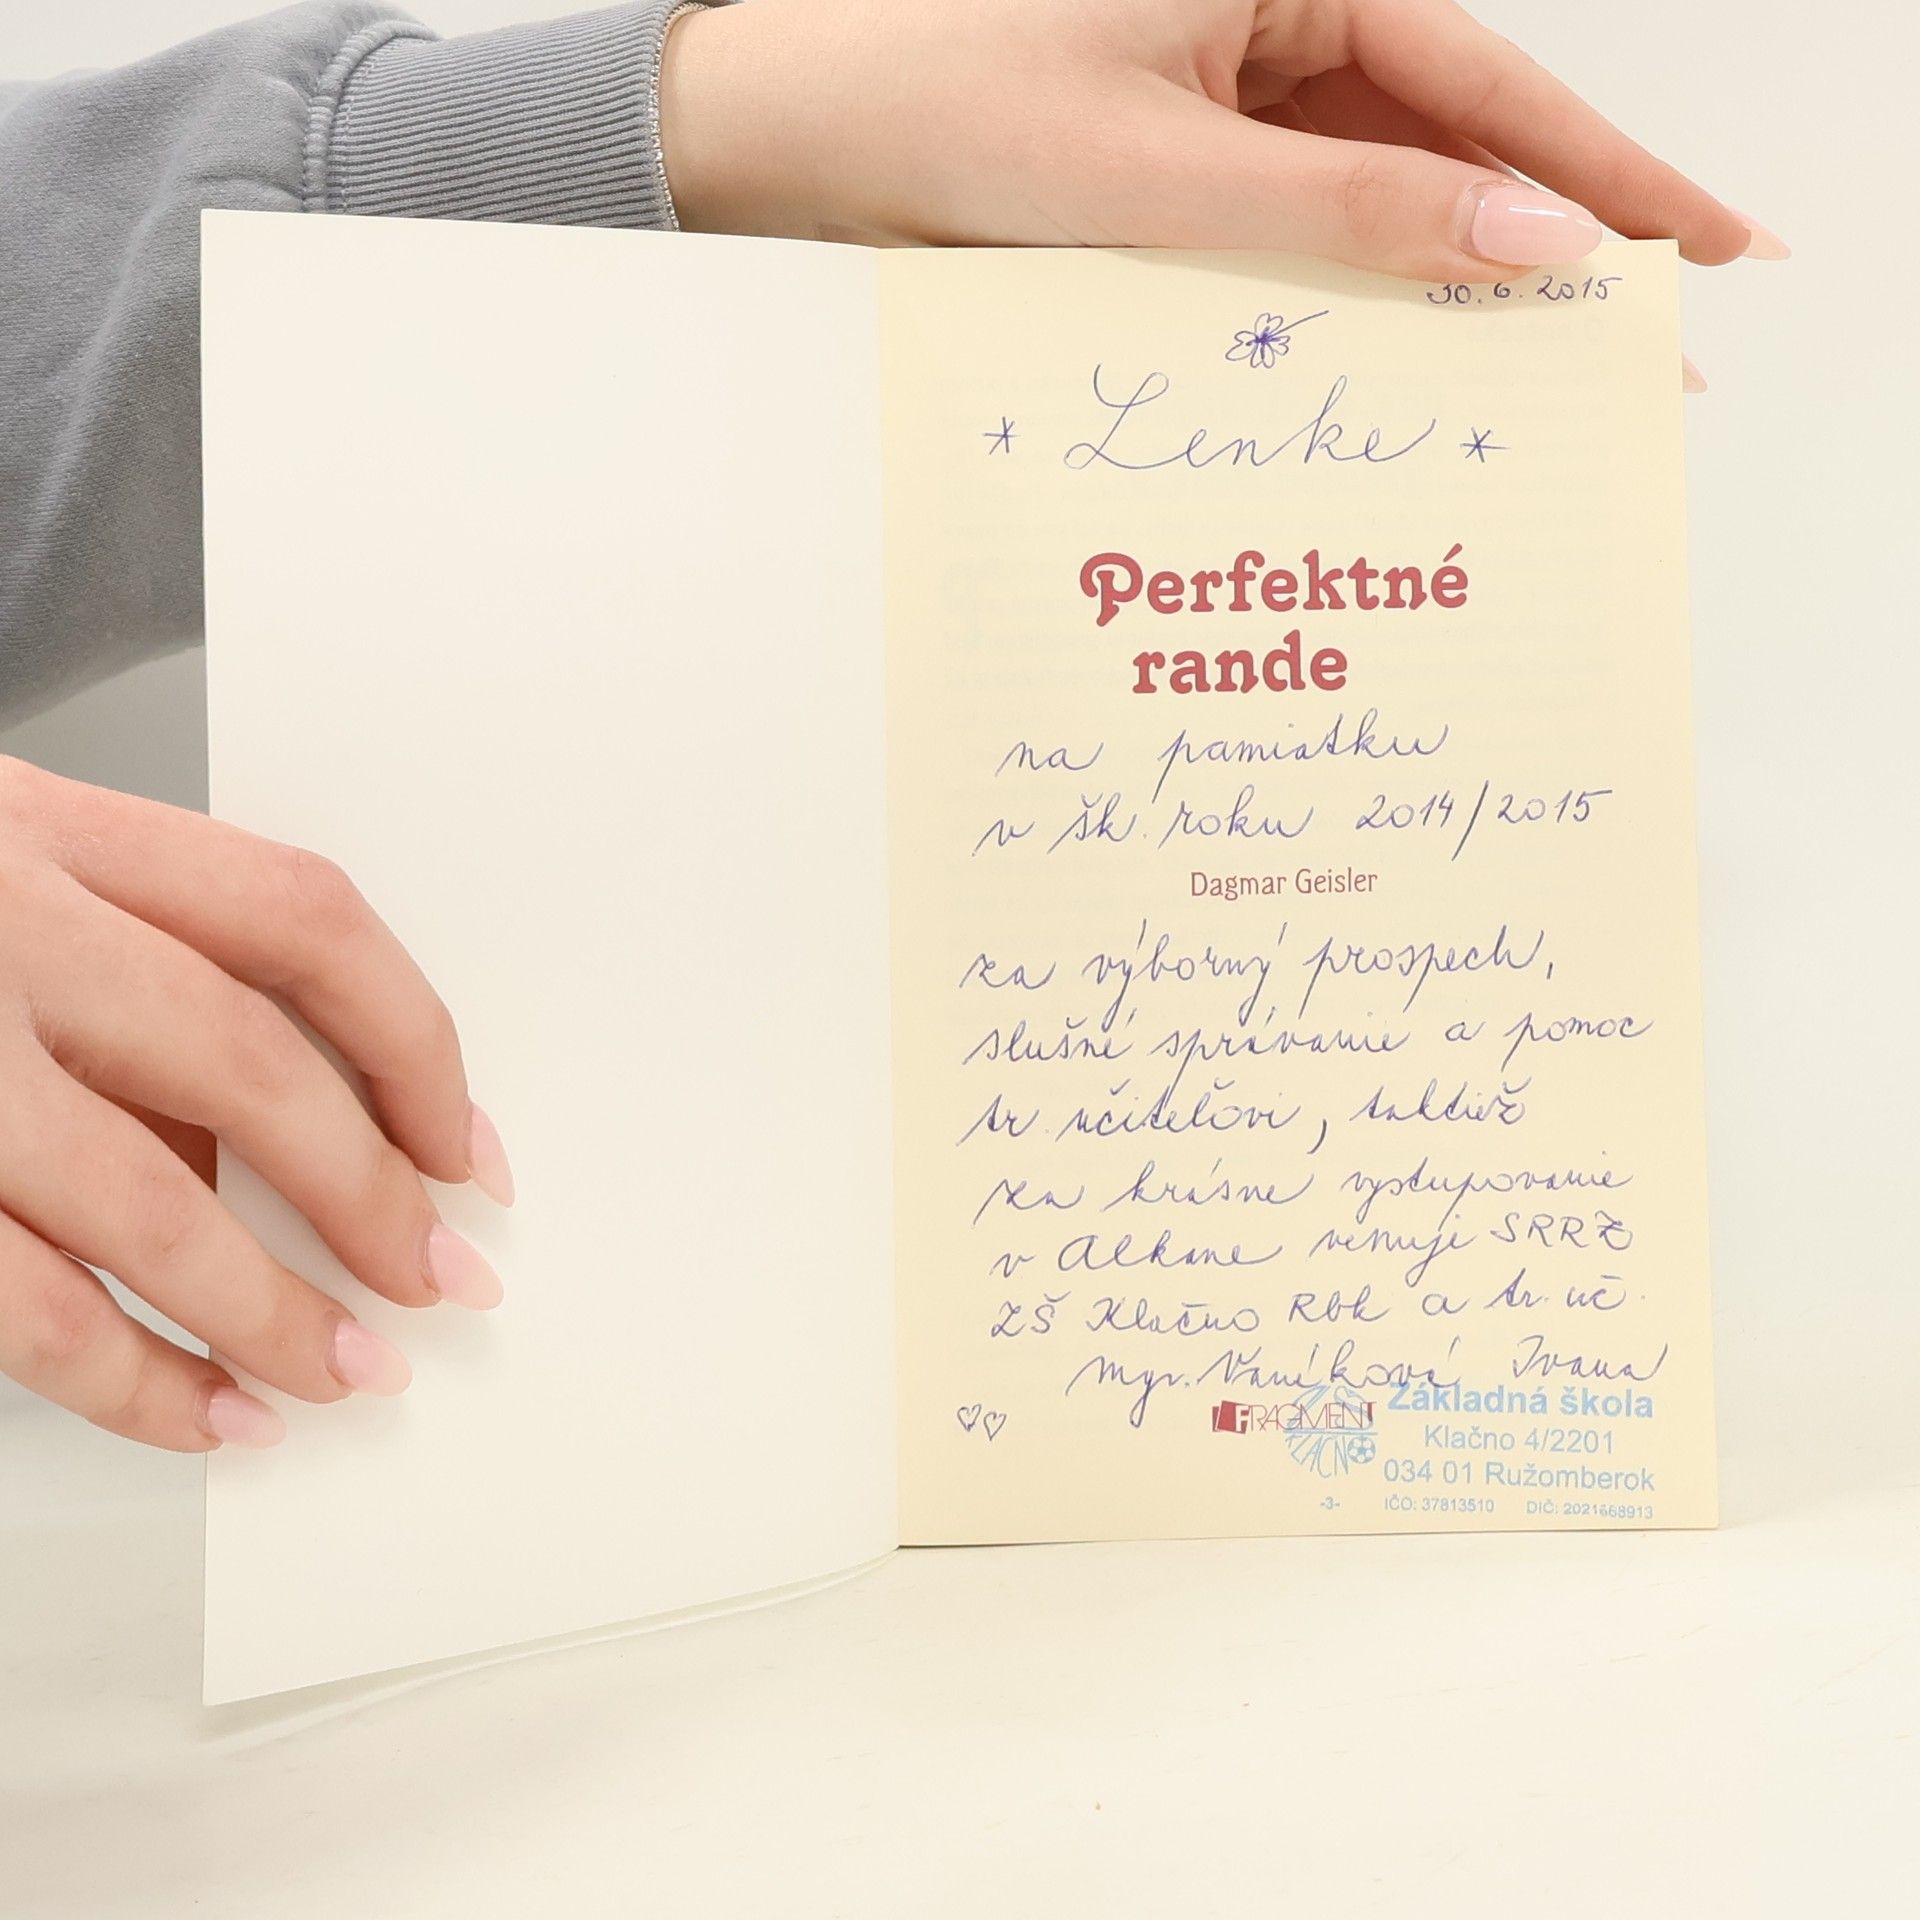 30. 6. 2015
* Lenke *
Perfektné
rande
na pamiatku
v šk. roku 2014/2015
Dagmar Geisler
za výborný prospech,
slušné správanie a pomoc
tr. učiteľovi, taktiež
za krásne vystupovanie
v Alkane venuje SRRZ
ZŠ Klačno Rbk a tr. uč.
Mgr. Vaníková Ivana
FRAGMENT
Základná škola
KLAČNO
Klačno 4/2201
034 01 Ružomberok
-3- IČO: 37813510 DIČ: 2021668913